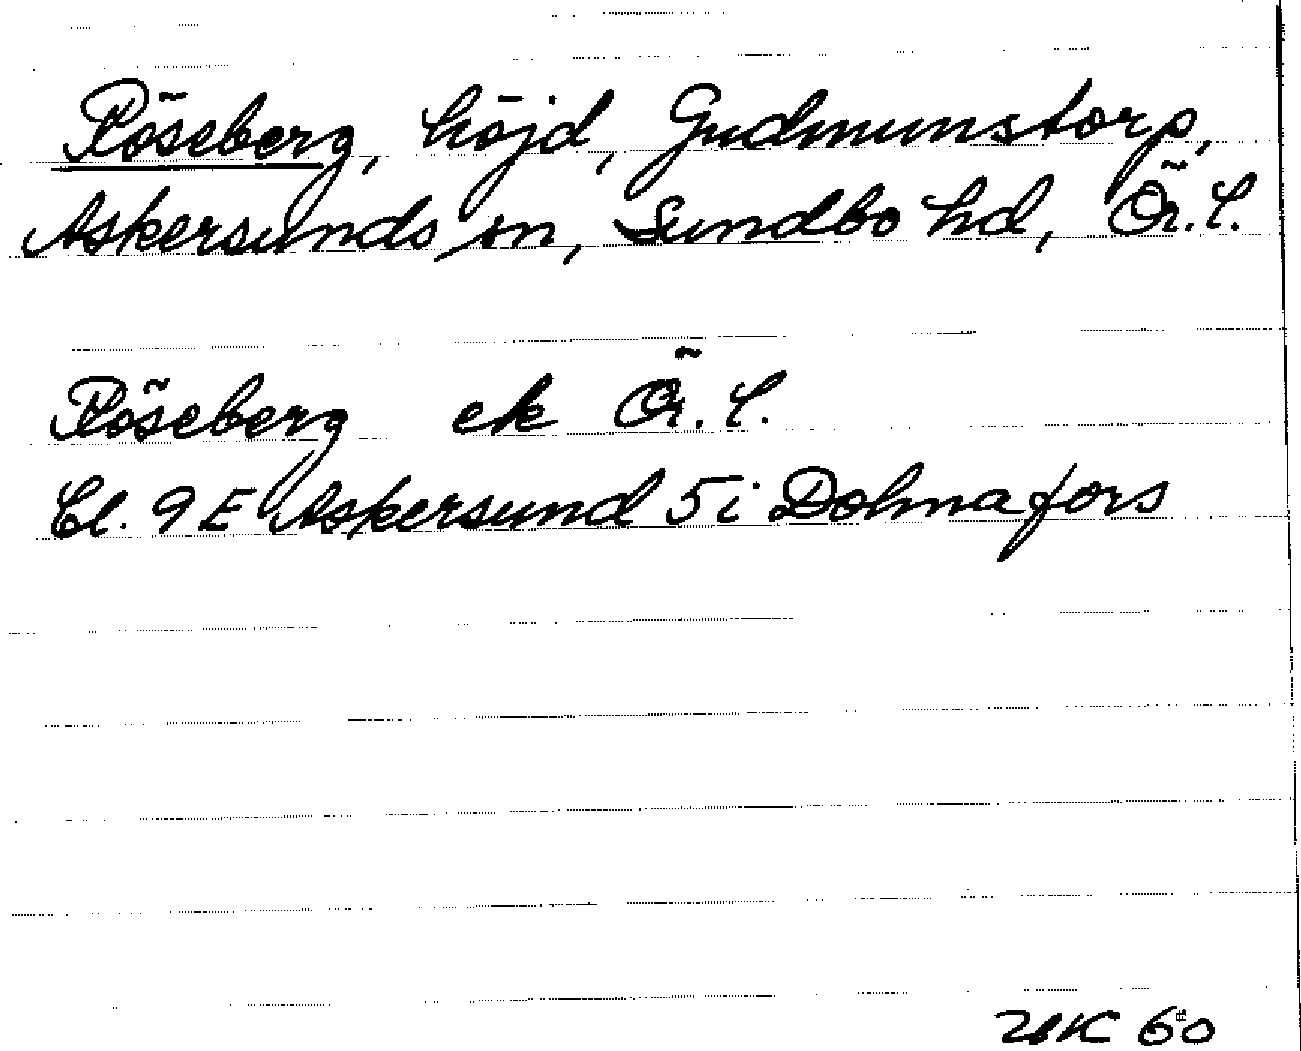 Röseberg, höjd, Gudmunstorp,
Askersunds sn, Sundbo hd, Ör. l.
Röseberg ek Ör. l.
Bl. 9 E Askersund 5i Dohnafors
UK 60